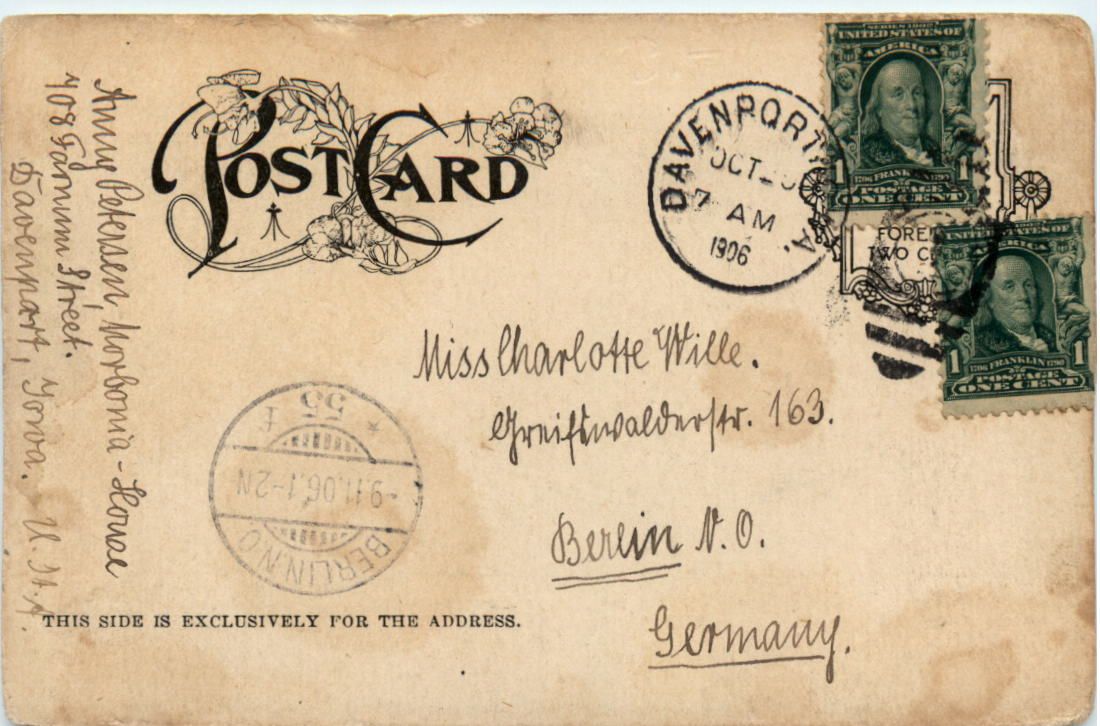 POST CARD
DAVENPORT
OCT 2
7 AM
1906
SERIES 1902
UNITED STATES OF
AMERICA
1706 FRANKLIN 1790
POSTAGE
1 ONE CENT 1
FOREI
TWO C
STATES OF
AMERICA
1706 FRANKLIN 1790
POSTAGE
1 ONE CENT 1
Anny Petersen, Morbonia-House
708 Gaymm Street.
Davenport, Iowa. U. St. A.
Miss Charlotte Wille.
Greifswalderstr. 163.
Berlin N. O.
Germany.
BERLIN.N.O
-9.11.06.1-2N
* 55 t
THIS SIDE IS EXCLUSIVELY FOR THE ADDRESS.